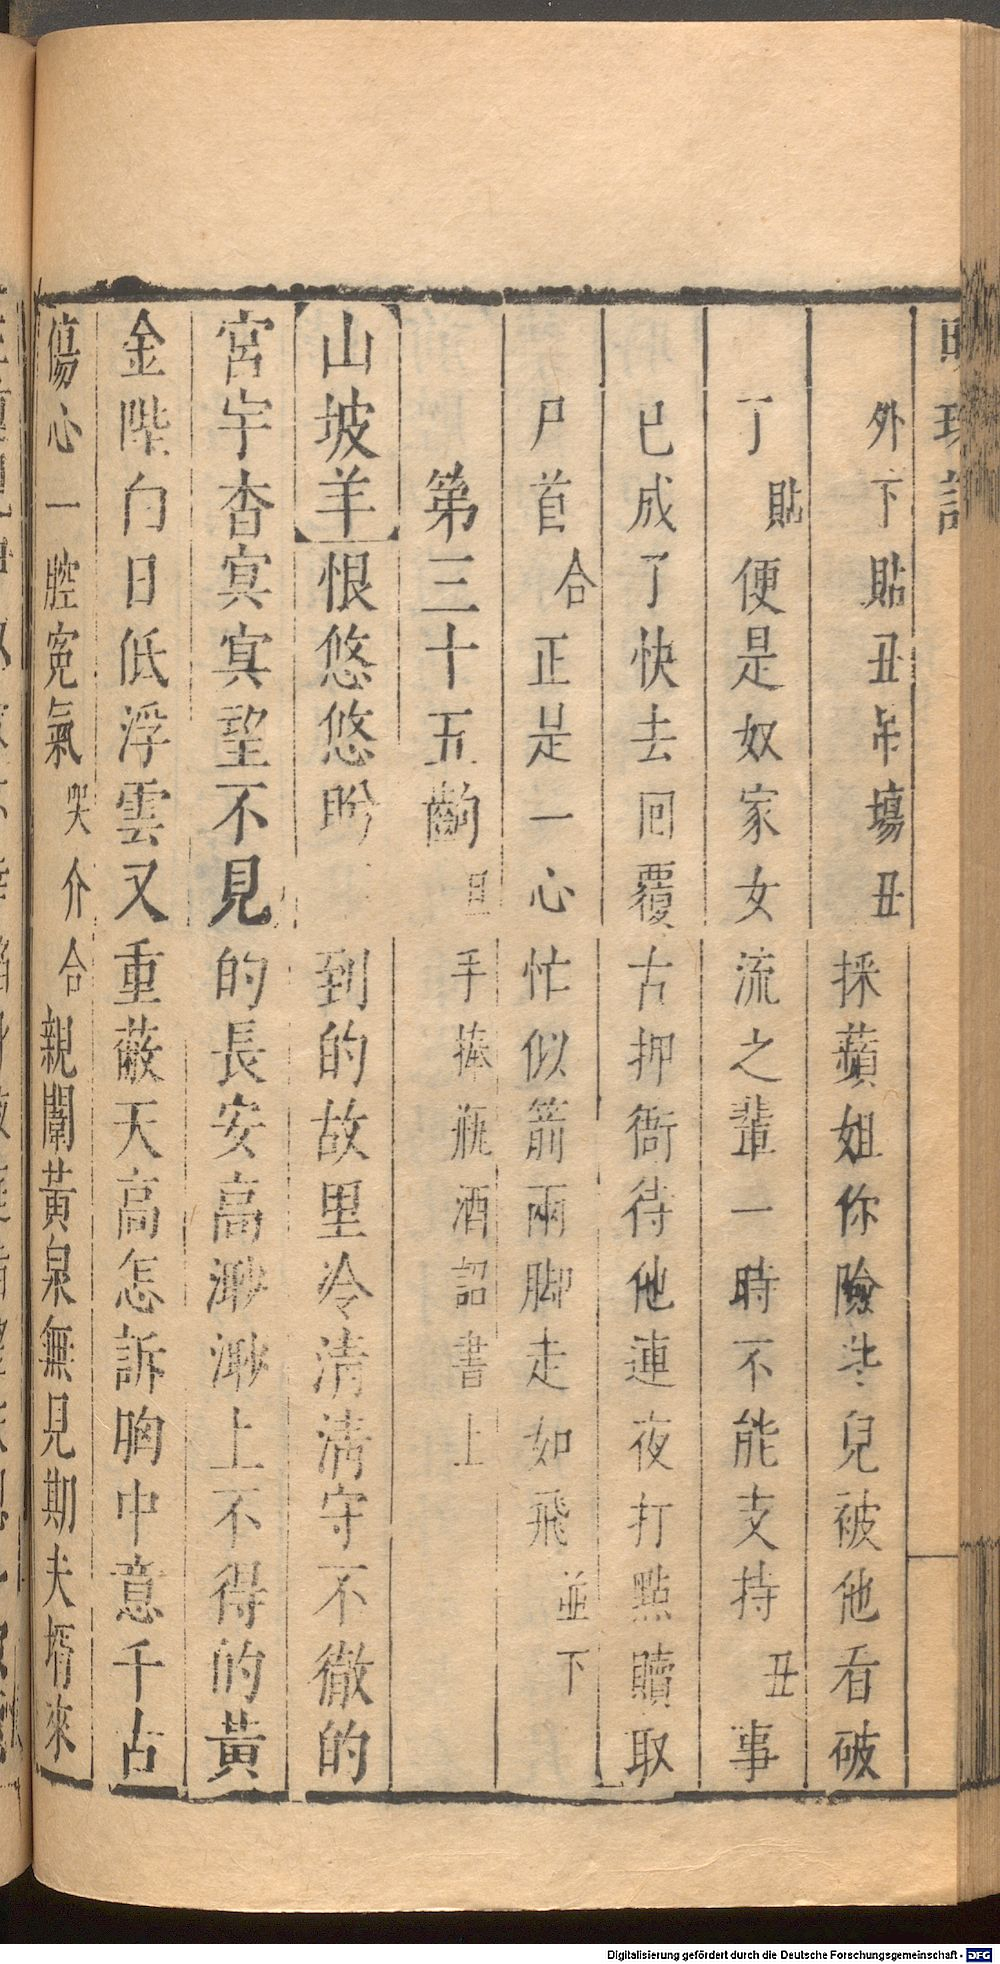 外下貼丑吊場丑採蘋姐你險些兒被他看破
了貼便是奴家女流之輩一時不能支持丑事
已成了快去囘覆古押衙待他連夜打點贖取
尸首合正是一心忙似箭兩脚走如飛並下
第三十五齣旦手捧瓶酒詔書上
山坡羊恨悠悠盻到的故里冷清清守不徹的
宮宇杳㝠㝠望不見的長安高渺渺上不得的黃
金陛白日低浮雲又重蔽天高怎訴胸中意千古
傷心一腔寃氣哭介合親闈黃泉無見期夫壻來
Digitalisierung gefördert durch die Deutsche Forschungsgemeinschaft - DFG